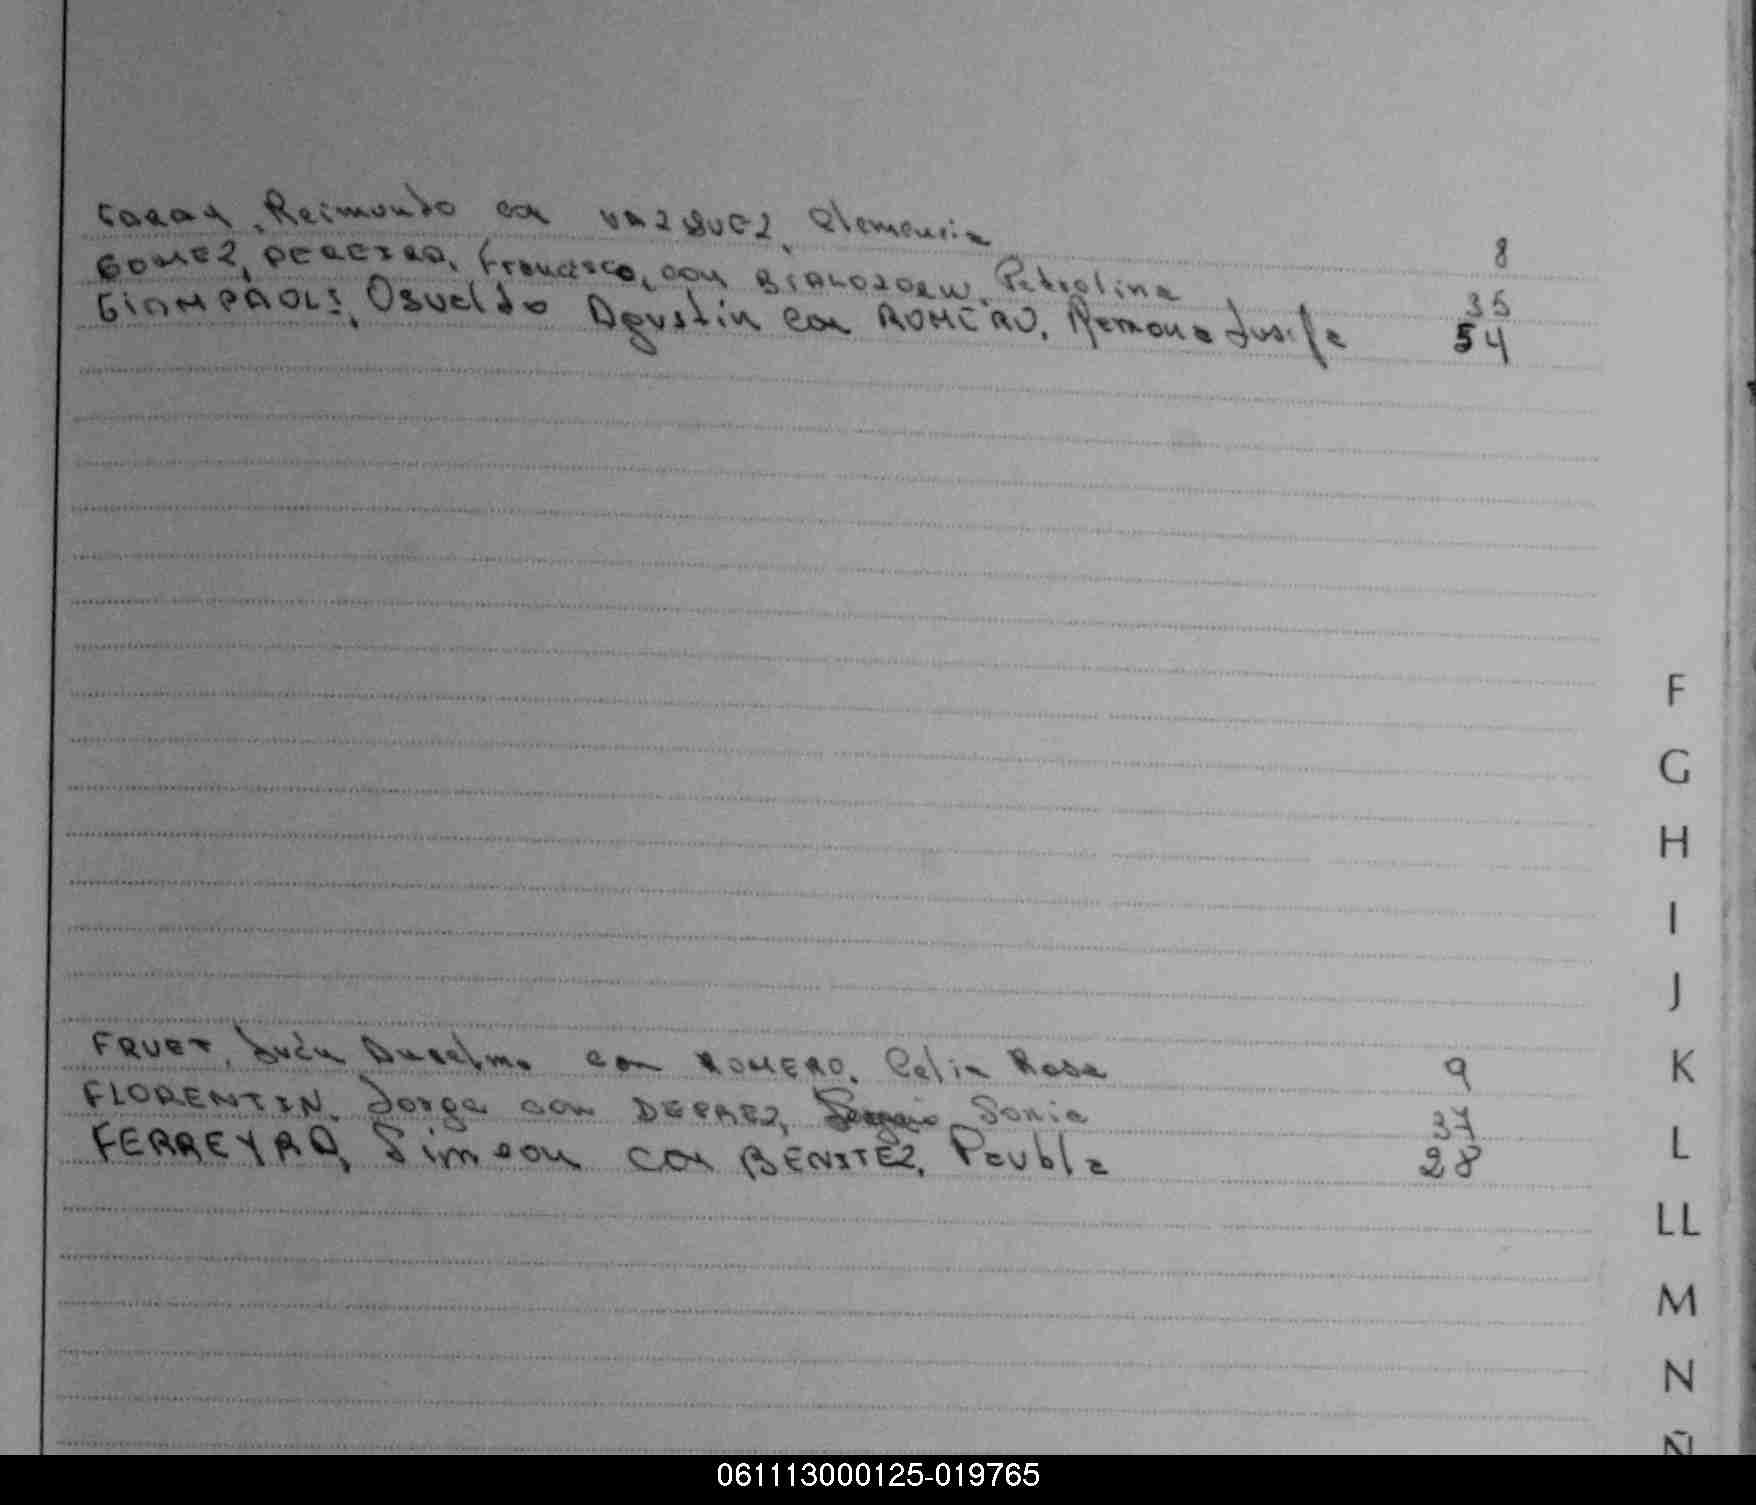 Reimundo con VAZQUEZ, Clemencia 8
GOMEZ, PEREIRA, Francisco, con Petrolina 35
GIAMPAOLI, Osvaldo Agustin con ROMERO, Ramona Josefa 54
F
G
H
I
J
FRUET, Juan Anselmo con ROMERO, Celia Rosa 9
K
FLORENTIN, Jorge con DEPREZ, Sonia 37
L
FERREYRA, Simeon con BENITEZ, Paubla 28
LL
M
N
Ñ
061113000125-019765